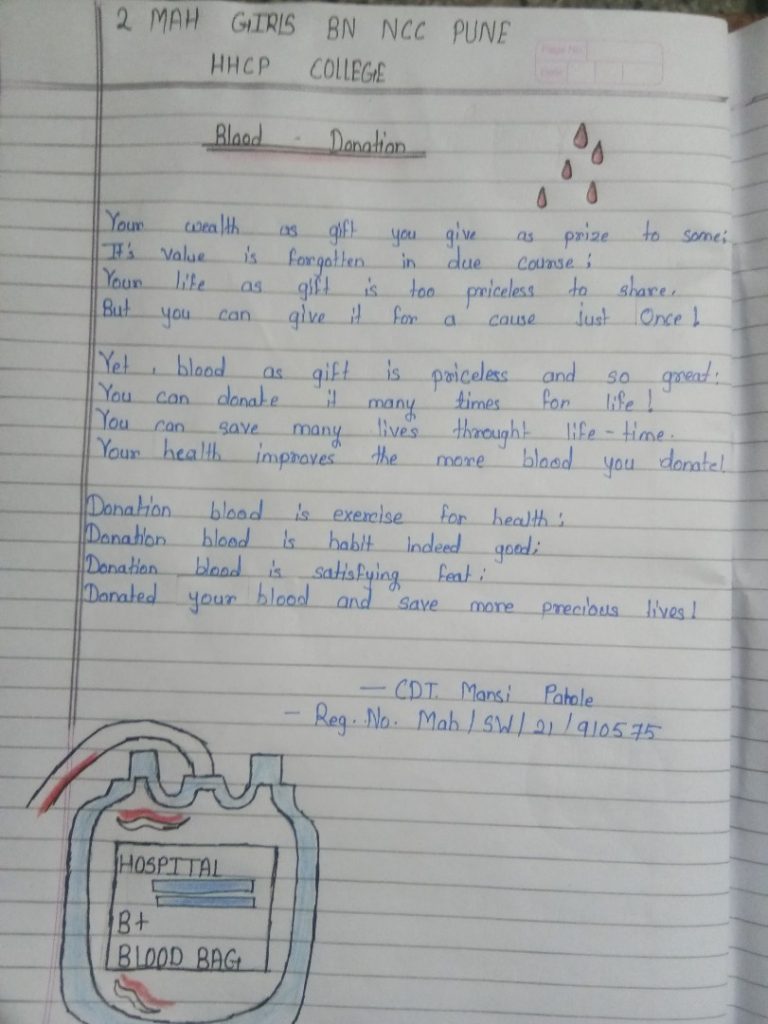 2 MAH GIRLS BN NCC PUNE
HHCP COLLEGE
Page No.
Date
Blood - Donation
Your wealth as gift you give as prize to some;
It's value is forgotten in due course;
Your life as gift is too priceless to share.
But you can give it for a cause just Once!
Yet, blood as gift is priceless and so great:
You can donate it many times for life!
You can save many lives throught life-time.
Your health improves the more blood you donate!
Donation blood is exercise for health;
Donation blood is habit indeed good;
Donation blood is satisfying feat;
Donated your blood and save more precious lives!
— CDT. Mansi Pahole
- Reg. No. Mah/SW/21/910575
HOSPITAL
B+
BLOOD BAG